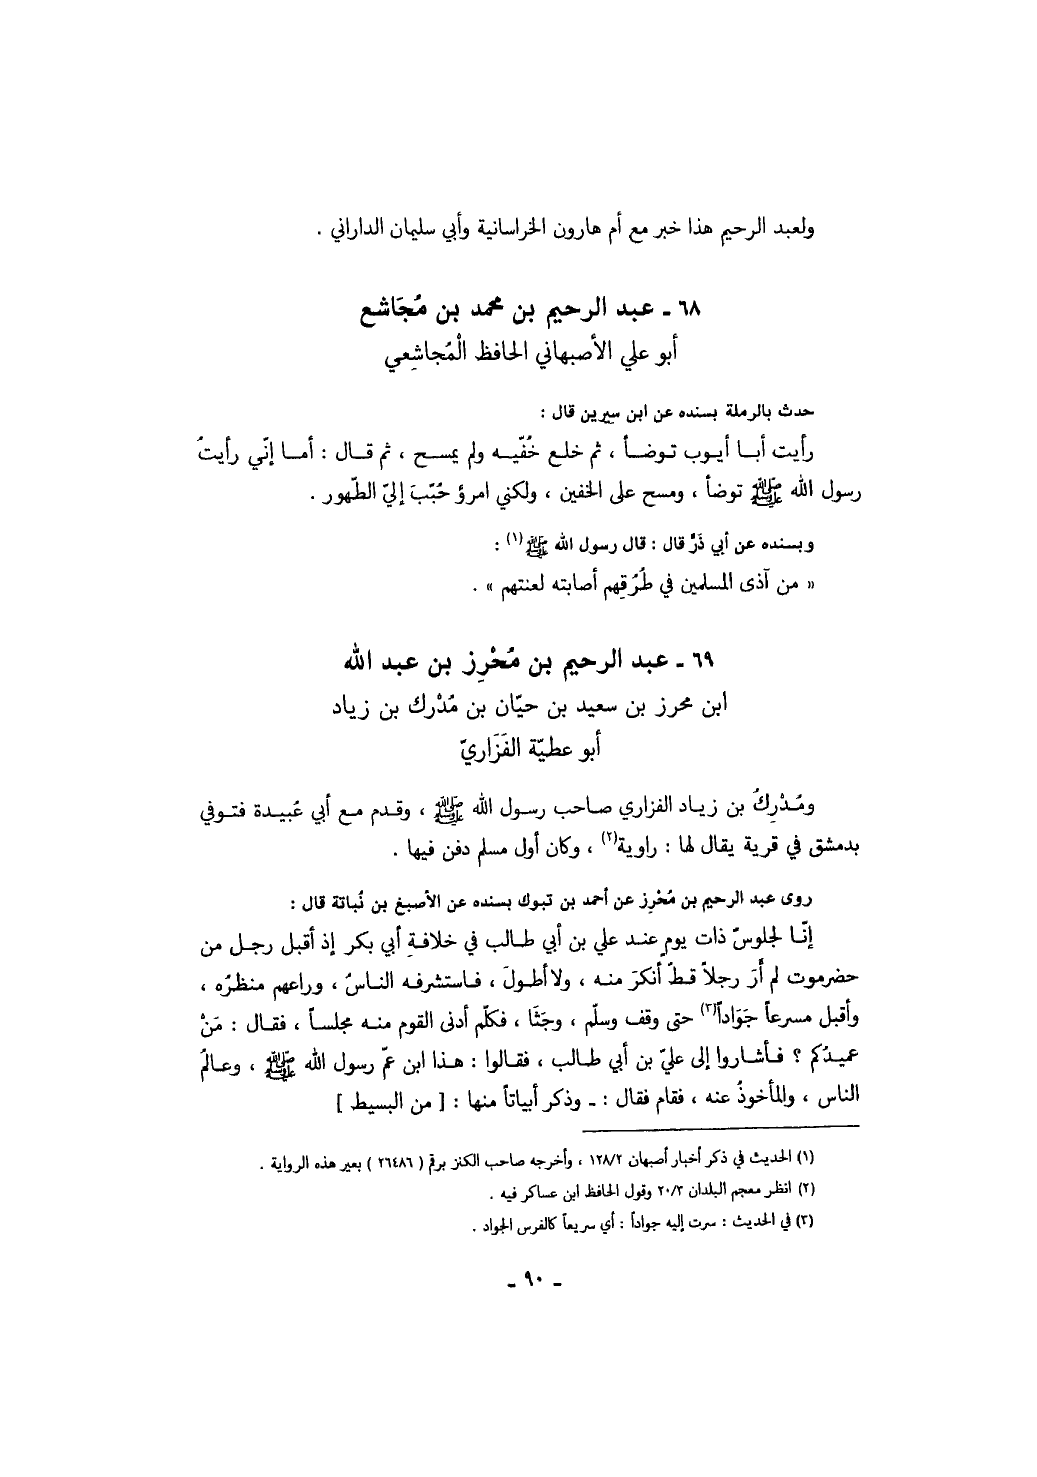 ولعبد الرحيم هذا خبر مع أم هارون الخراسانية وأبي سليمان الداراني .
٦٨ ـ عبد الرحيم بن محمد بن مُجَاشع
أبو علي الأصبهاني الحافظ الْمُجاشِعي
حدث بالرملة بسنده عن ابن سيرين قال :
رأيت أبا أيوب توضأ ، ثم خلع خُفّيه ولم يمسح ، ثم قال : أما إنّي رأيتُ
رسول الله ﷺ توضأ ، ومسح على الخفين ، ولكني امرؤ حُبّبَ إليّ الطّهور .
وبسنده عن أبي ذَرّ قال : قال رسول الله ﷺ(١) :
« من آذى المسلمين في طُرُقِهم أصابته لعنتهم » .
٦٩ ـ عبد الرحيم بن مُحْرِز بن عبد الله
ابن محرز بن سعيد بن حيّان بن مُدْرك بن زياد
أبو عطيّة الفَزَاريّ
ومُدْرِكُ بن زياد الفزاري صاحب رسول الله ﷺ ، وقدم مع أبي عُبيدة فتوفي
بدمشق في قرية يقال لها : راوية(٢) ، وكان أول مسلم دفن فيها .
روى عبد الرحيم بن مُحْرِز عن أحمد بن تبوك بسنده عن الأصبغ بن نُباتة قال :
إنّا لجلوسٌ ذات يومٍ عند علي بن أبي طالب في خلافةِ أبي بكر إذ أقبل رجل من
حضرموت لم أَرَ رجلاً قطّ أنكرَ منه ، ولا أطولَ ، فاستشرفه الناسُ ، وراعهم منظرُه ،
وأقبل مسرعاً جَوَاداً(٣) حتى وقف وسلّم ، وجَثَا ، فكلّم أدنى القوم منه مجلساً ، فقال : مَنْ
عميدُكم ؟ فأشاروا إلى عليّ بن أبي طالب ، فقالوا : هذا ابن عمّ رسول الله ﷺ ، وعالمُ
الناس ، والمأخوذُ عنه ، فقام فقال : ـ وذكر أبياتاً منها : [ من البسيط ]
(١) الحديث في ذكر أخبار أصبهان ١٢٨/٢ ، وأخرجه صاحب الكنز برقم ( ٢٦٤٨٦ ) بعير هذه الرواية .
(٢) انظر معجم البلدان ٢٠/٣ وقول الحافظ ابن عساكر فيه .
(٣) في الحديث : سرت إليه جواداً : أي سريعاً كالفرس الجواد .
ـ ٩٠ ـ